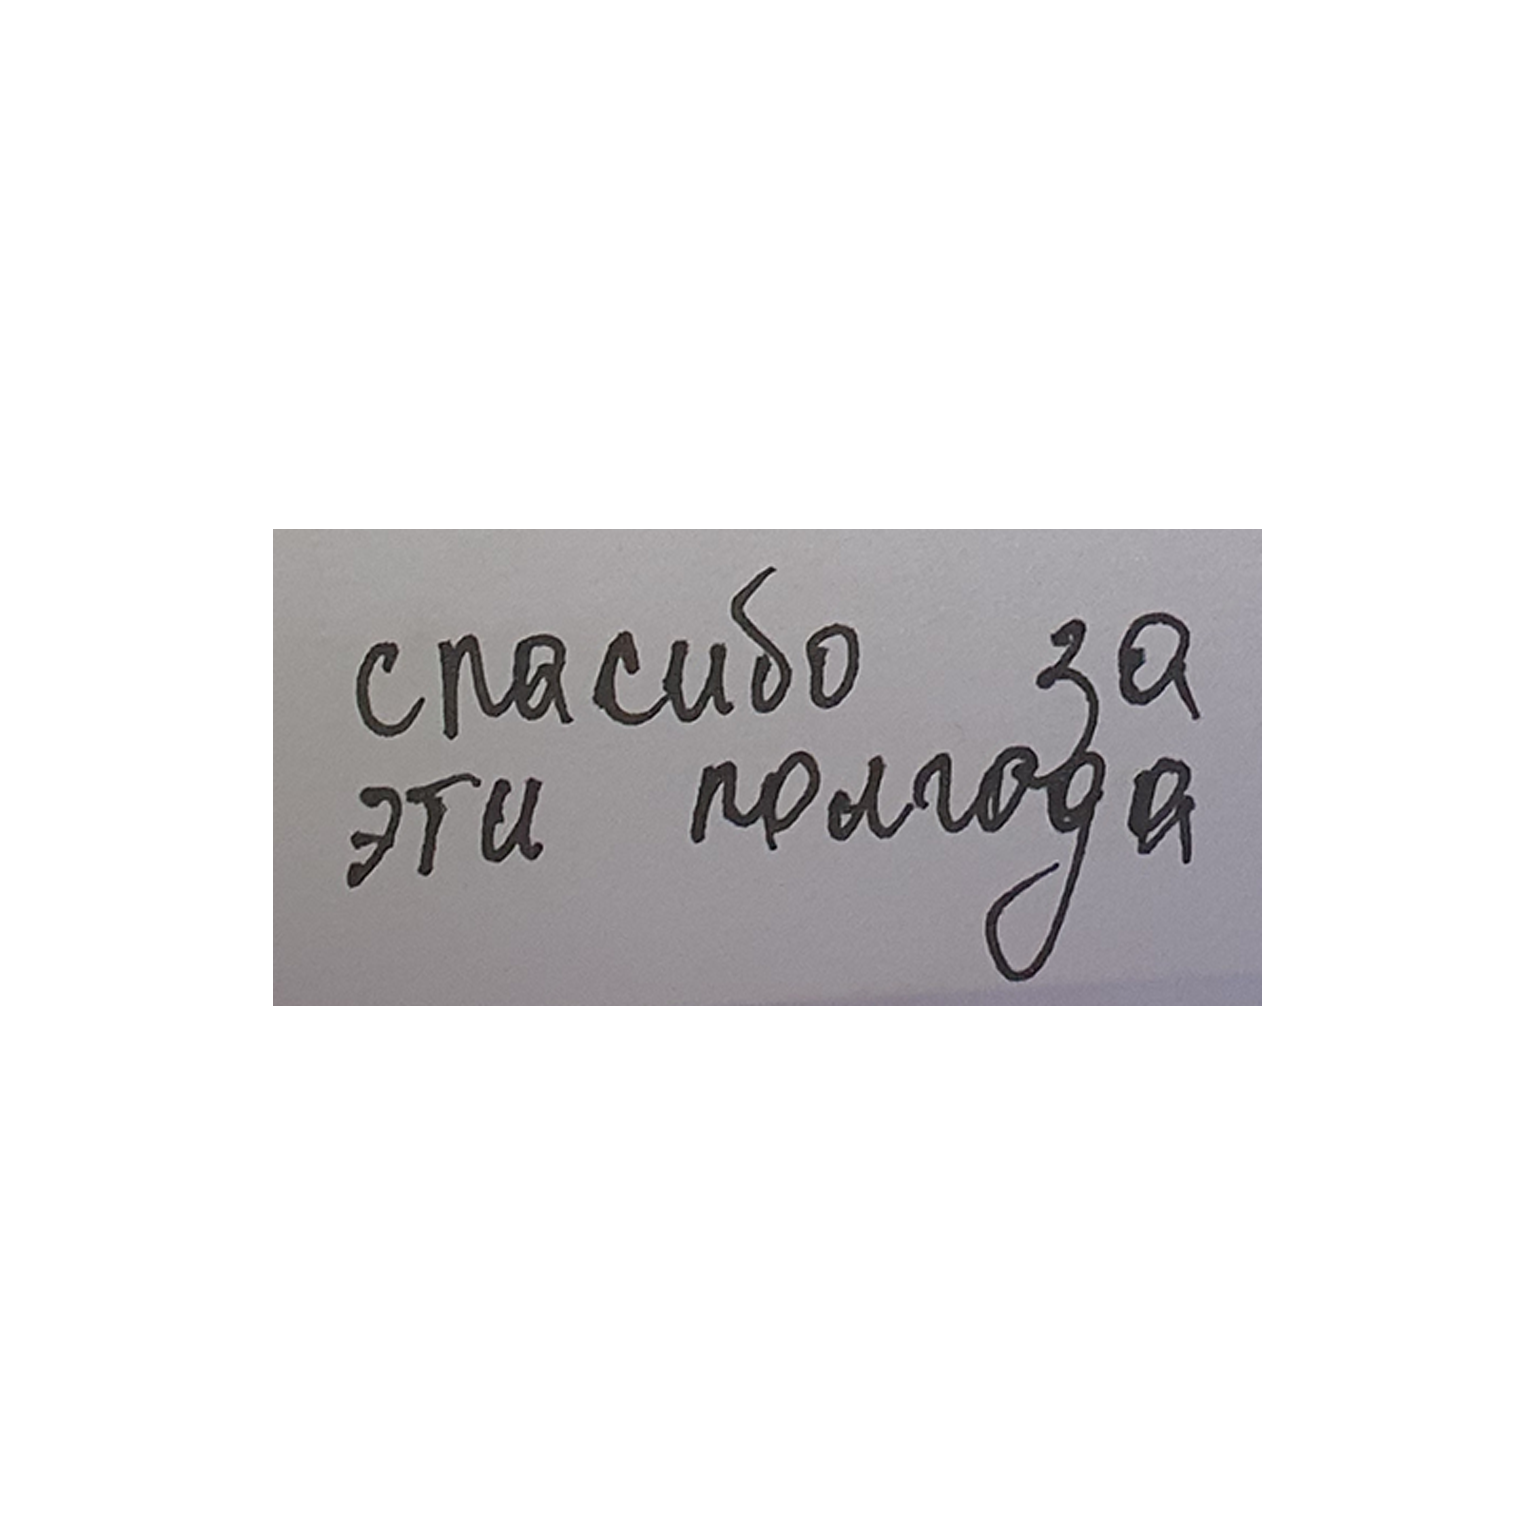 спасибо за
эти полгода